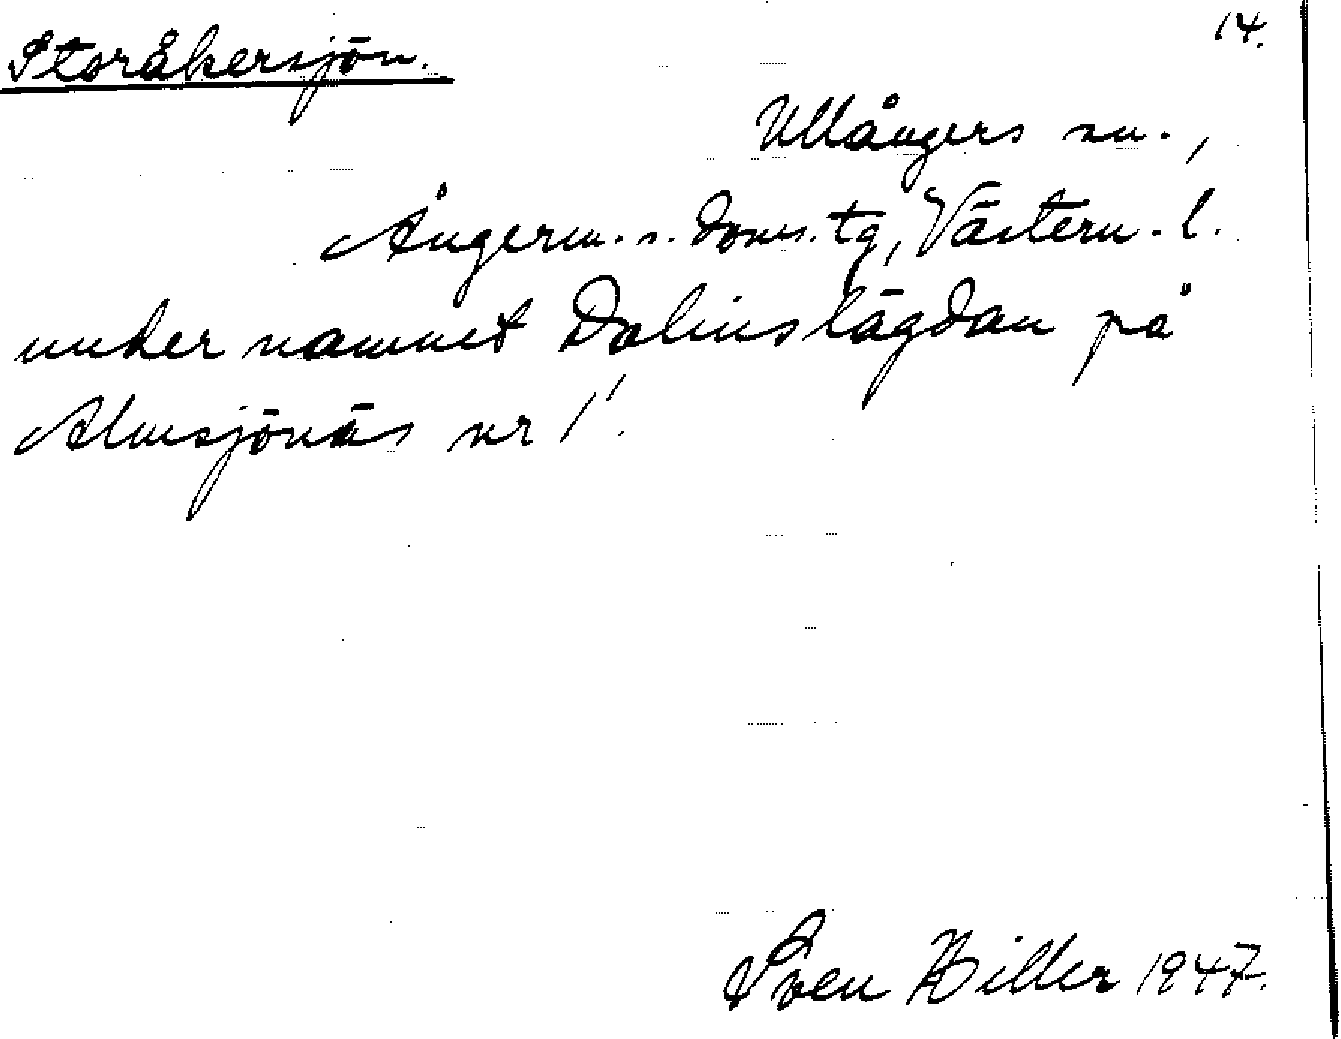 14.
Storåkersjön.
Ullångers sn.,
Ångerm. s. doms. tg, Västern. l.
under namnet Dalinslägdan på
Almsjönäs nr 1.
Sven Hiller 1947.